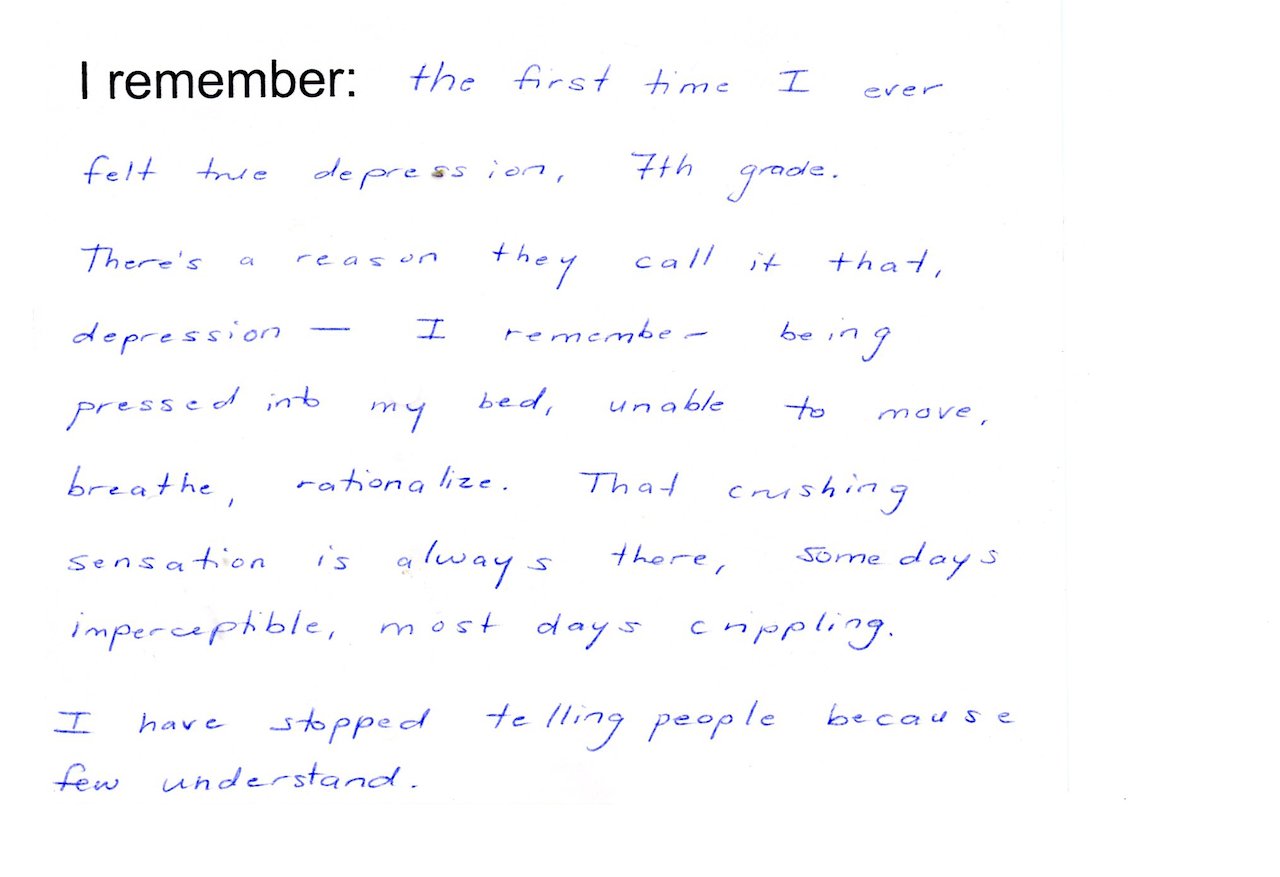 I remember: the first time I ever
felt true depression, 7th grade.
There's a reason they call it that,
depression — I remember being
pressed into my bed, unable to move,
breathe, rationalize. That crushing
sensation is always there, some days
imperceptible, most days crippling.
I have stopped telling people because
few understand.